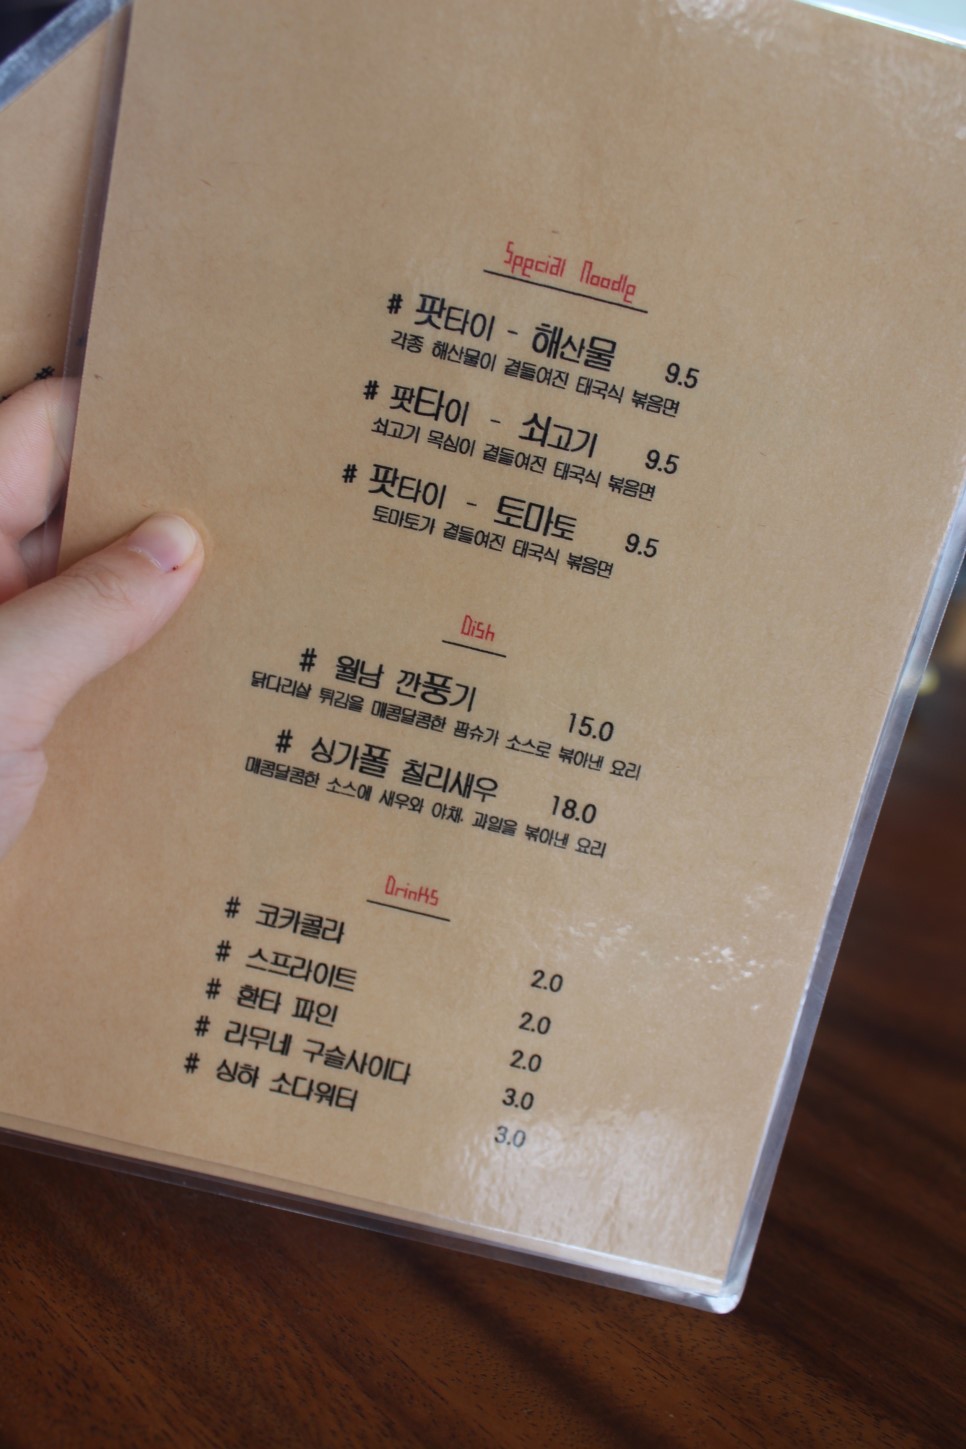 Special Noodle
# 팟타이 - 해산물 9.5
각종 해산물이 곁들여진 태국식 볶음면
# 팟타이 - 쇠고기 9.5
쇠고기 목심이 곁들여진 태국식 볶음면
# 팟타이 - 토마토 9.5
토마토가 곁들여진 태국식 볶음면
Dish
# 월남 깐풍기 15.0
닭다리살 튀김을 매콤달콤한 팜슈가 소스로 볶아낸 요리
# 싱가폴 칠리새우 18.0
매콤달콤한 소스에 새우와 야채, 과일을 볶아낸 요리
Drinks
# 코카콜라 2.0
# 스프라이트 2.0
# 환타 파인 2.0
# 라무네 구슬사이다 3.0
# 싱하 소다워터 3.0
#